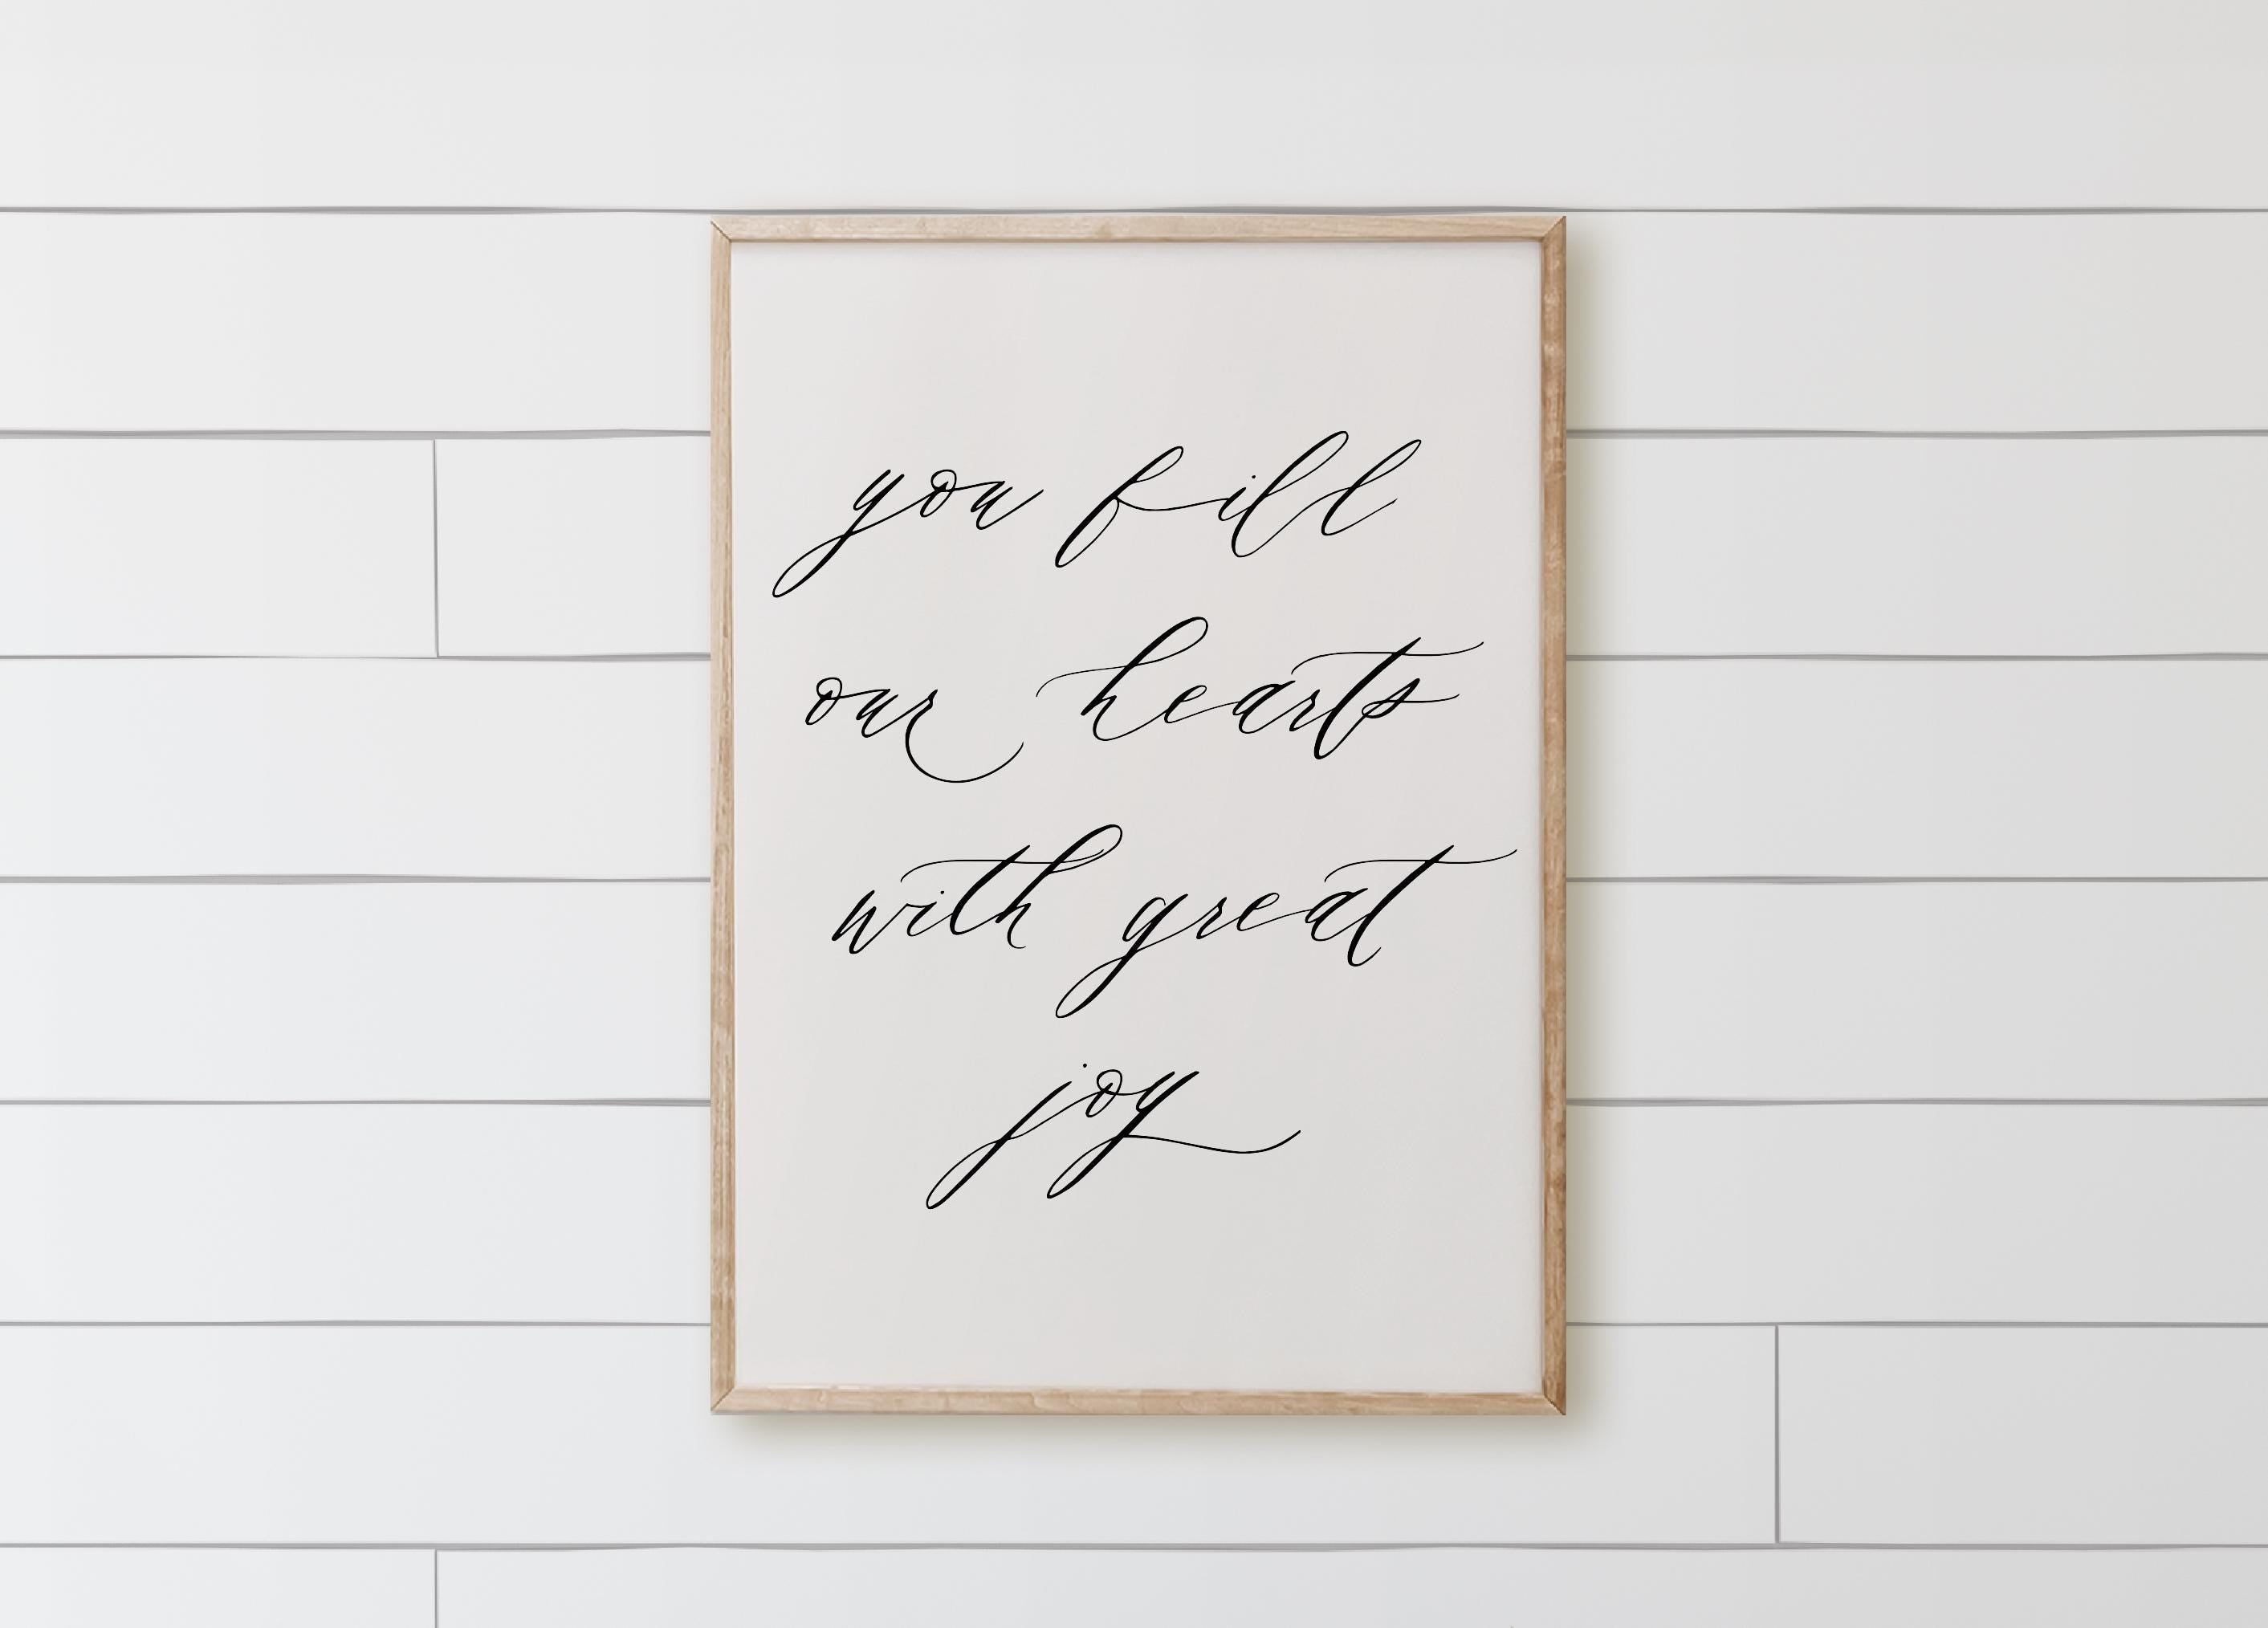 you fill
our hearts
with great
joy